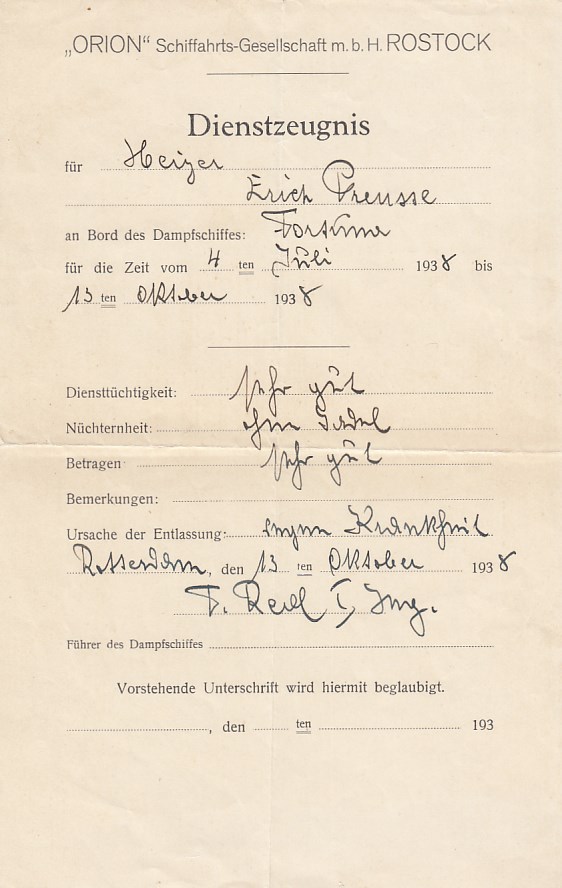 „ORION“ Schiffahrts-Gesellschaft m. b. H. ROSTOCK
Dienstzeugnis
für Heizer
Erich Preusse
an Bord des Dampfschiffes: Fortuna
für die Zeit vom 4 ten Juli 1938 bis
13 ten Oktober 1938
Diensttüchtigkeit: sehr gut
Nüchternheit: ohne Tadel
Betragen sehr gut
Bemerkungen:
Ursache der Entlassung: wegen Krankheit
Rotterdam, den 13 ten Oktober 1938
I. Ing.
Führer des Dampfschiffes
Vorstehende Unterschrift wird hiermit beglaubigt.
, den ten 193